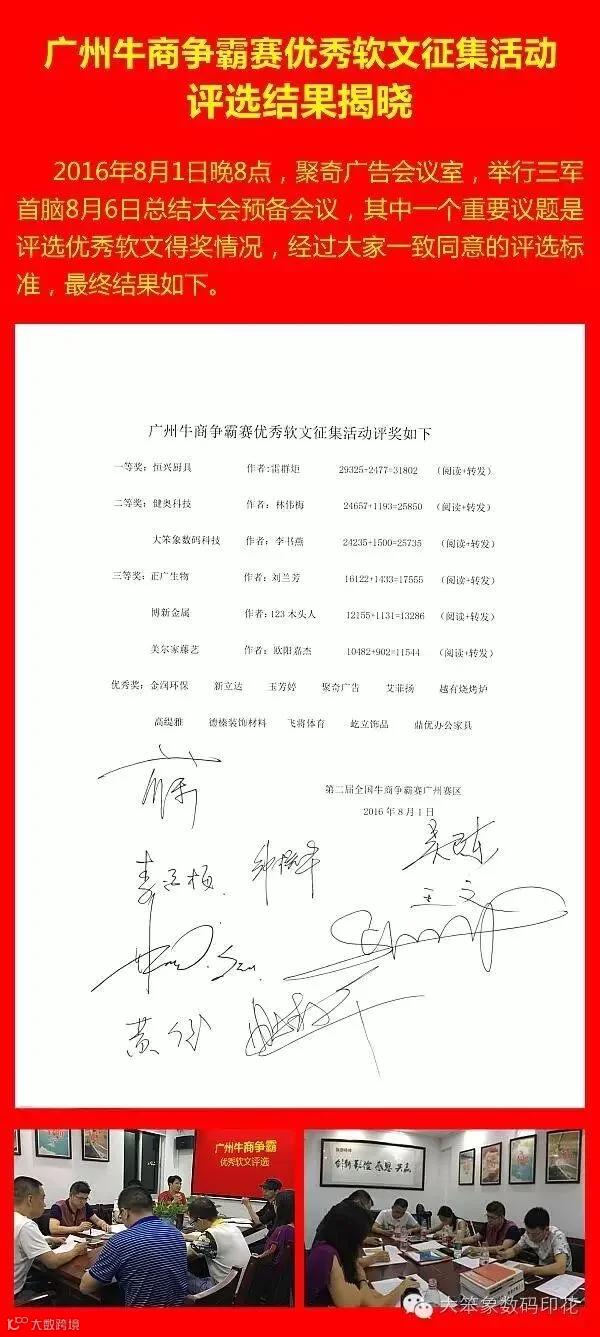 广州牛商争霸赛优秀软文征集活动
评选结果揭晓
2016年8月1日晚8点，聚奇广告会议室，举行三军
首脑8月6日总结大会预备会议，其中一个重要议题是
评选优秀软文得奖情况，经过大家一致同意的评选标
准，最终结果如下。
广州牛商争霸赛优秀软文征集活动评奖如下
一等奖：恒兴厨具 作者:雷群炬 29325+2477=31802 （阅读+转发）
二等奖：健奥科技 作者：林伟梅 24657+1193=25850 （阅读+转发）
大笨象数码科技 作者：李书燕 24235+1500=25735 （阅读+转发）
三等奖：正广生物 作者：刘兰芳 16122+1433=17555 （阅读+转发）
博新金属 作者：123木头人 12155+1131=13286 （阅读+转发）
美尔家藤艺 作者：欧阳嘉杰 10482+902=11544 （阅读+转发）
优秀奖：金润环保 新立达 玉芳婷 聚奇广告 艾菲扬 越有烧烤炉
高缇雅 德榛装饰材料 飞将体育 屹立饰品 鼎优办公家具
第二届全国牛商争霸赛广州赛区
2016年8月1日
王文
黄
广州牛商争霸
优秀软文评选
大笨象数码印花
大数跨境